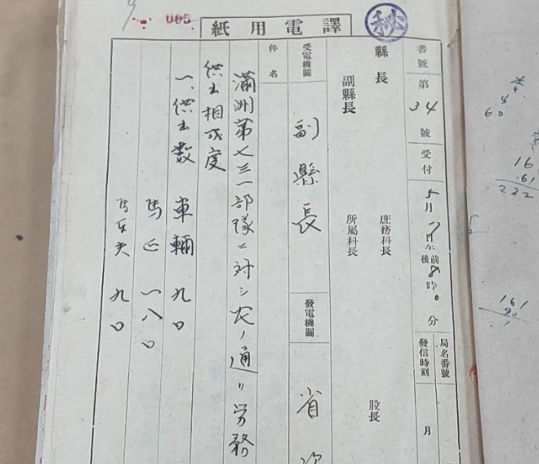 005
紙用電譯
秘
番號 第 34 號 受付 5月7日 午前後 8時0分 局名番號 發信時刻 月
縣長 副縣長 庶務科長 所屬科長 股長
受電機關 副縣長 發電機關 省次
件名
滿洲第七三一部隊ニ対シ次ノ通リ労務
供出相成度
一、供出数 車輛 九〇
馬匹 一八〇
馬車夫 九〇
16
.61
222
161